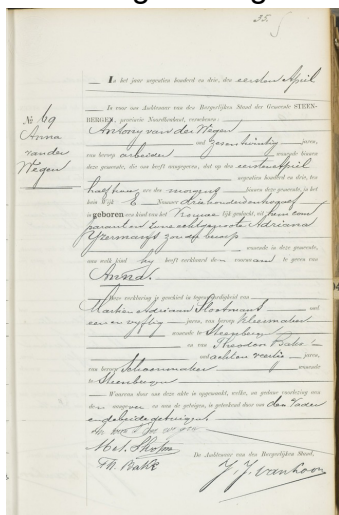 35.
In het jaar negentien honderd en drie, den eersten April
is voor ons Ambtenaar van den Burgerlijken Stand der Gemeente STEEN-
BERGEN, provincie Noordbrabant, verschenen:
№ 69
Anna
van der
Wegen
Antony van der Wegen
oud zes en twintig jaren,
van beroep arbeider wonende binnen
deze gemeente, die ons heeft aangegeven, dat op den eersten April
negentien honderd en drie, ten
half ure, des morgens binnen deze gemeente, in het
huis Wijk E Nummer
is geboren een kind van het Vrouwe lijk geslacht, uit hem com-
parant en zijne echtgenoote Adriana
IJzermans zonder beroep
wonende in deze gemeente,
aan welk kind hij heeft verklaard de voornaam te geven van
Anna.
Deze verklaring is geschied in tegenwoordigheid van
Marlien Adriaan Slootmans oud
een en vijftig jaren, van beroep kleermaker
wonende te Steenbergen
en van Theodor Bake
oud acht en veertig jaren,
van beroep Schoenmaker wonende
te Steenbergen
Waarvan door ons deze akte is opgemaakt, welke, na gedane voorlezing aan
den aangever en aan de getuigen, is geteekend door ons den Vader
en beide getuigen
Th. Bake
De Ambtenaar van den Burgerlijken Stand,
J. J. van Loon